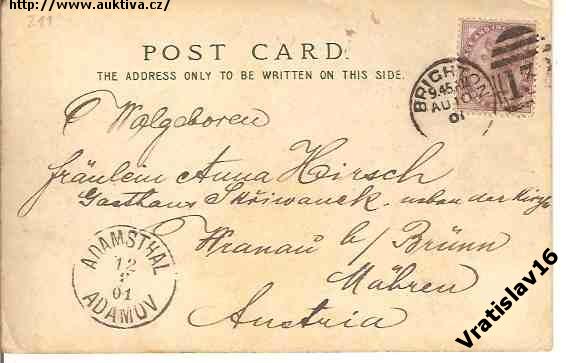 http://www.auktiva.cz/
211
POST CARD.
THE ADDRESS ONLY TO BE WRITTEN ON THIS SIDE.
BRIGHTON
9.45
AU 10
01
Wolgeboren
Fräulein Anna Hirsch
Gasthaus Skřiwanek neben der Kirche
Wranau b/ Brünn
Mähren
Austria
ADAMSTHAL
12
01
ADAMOV
Vratislav16